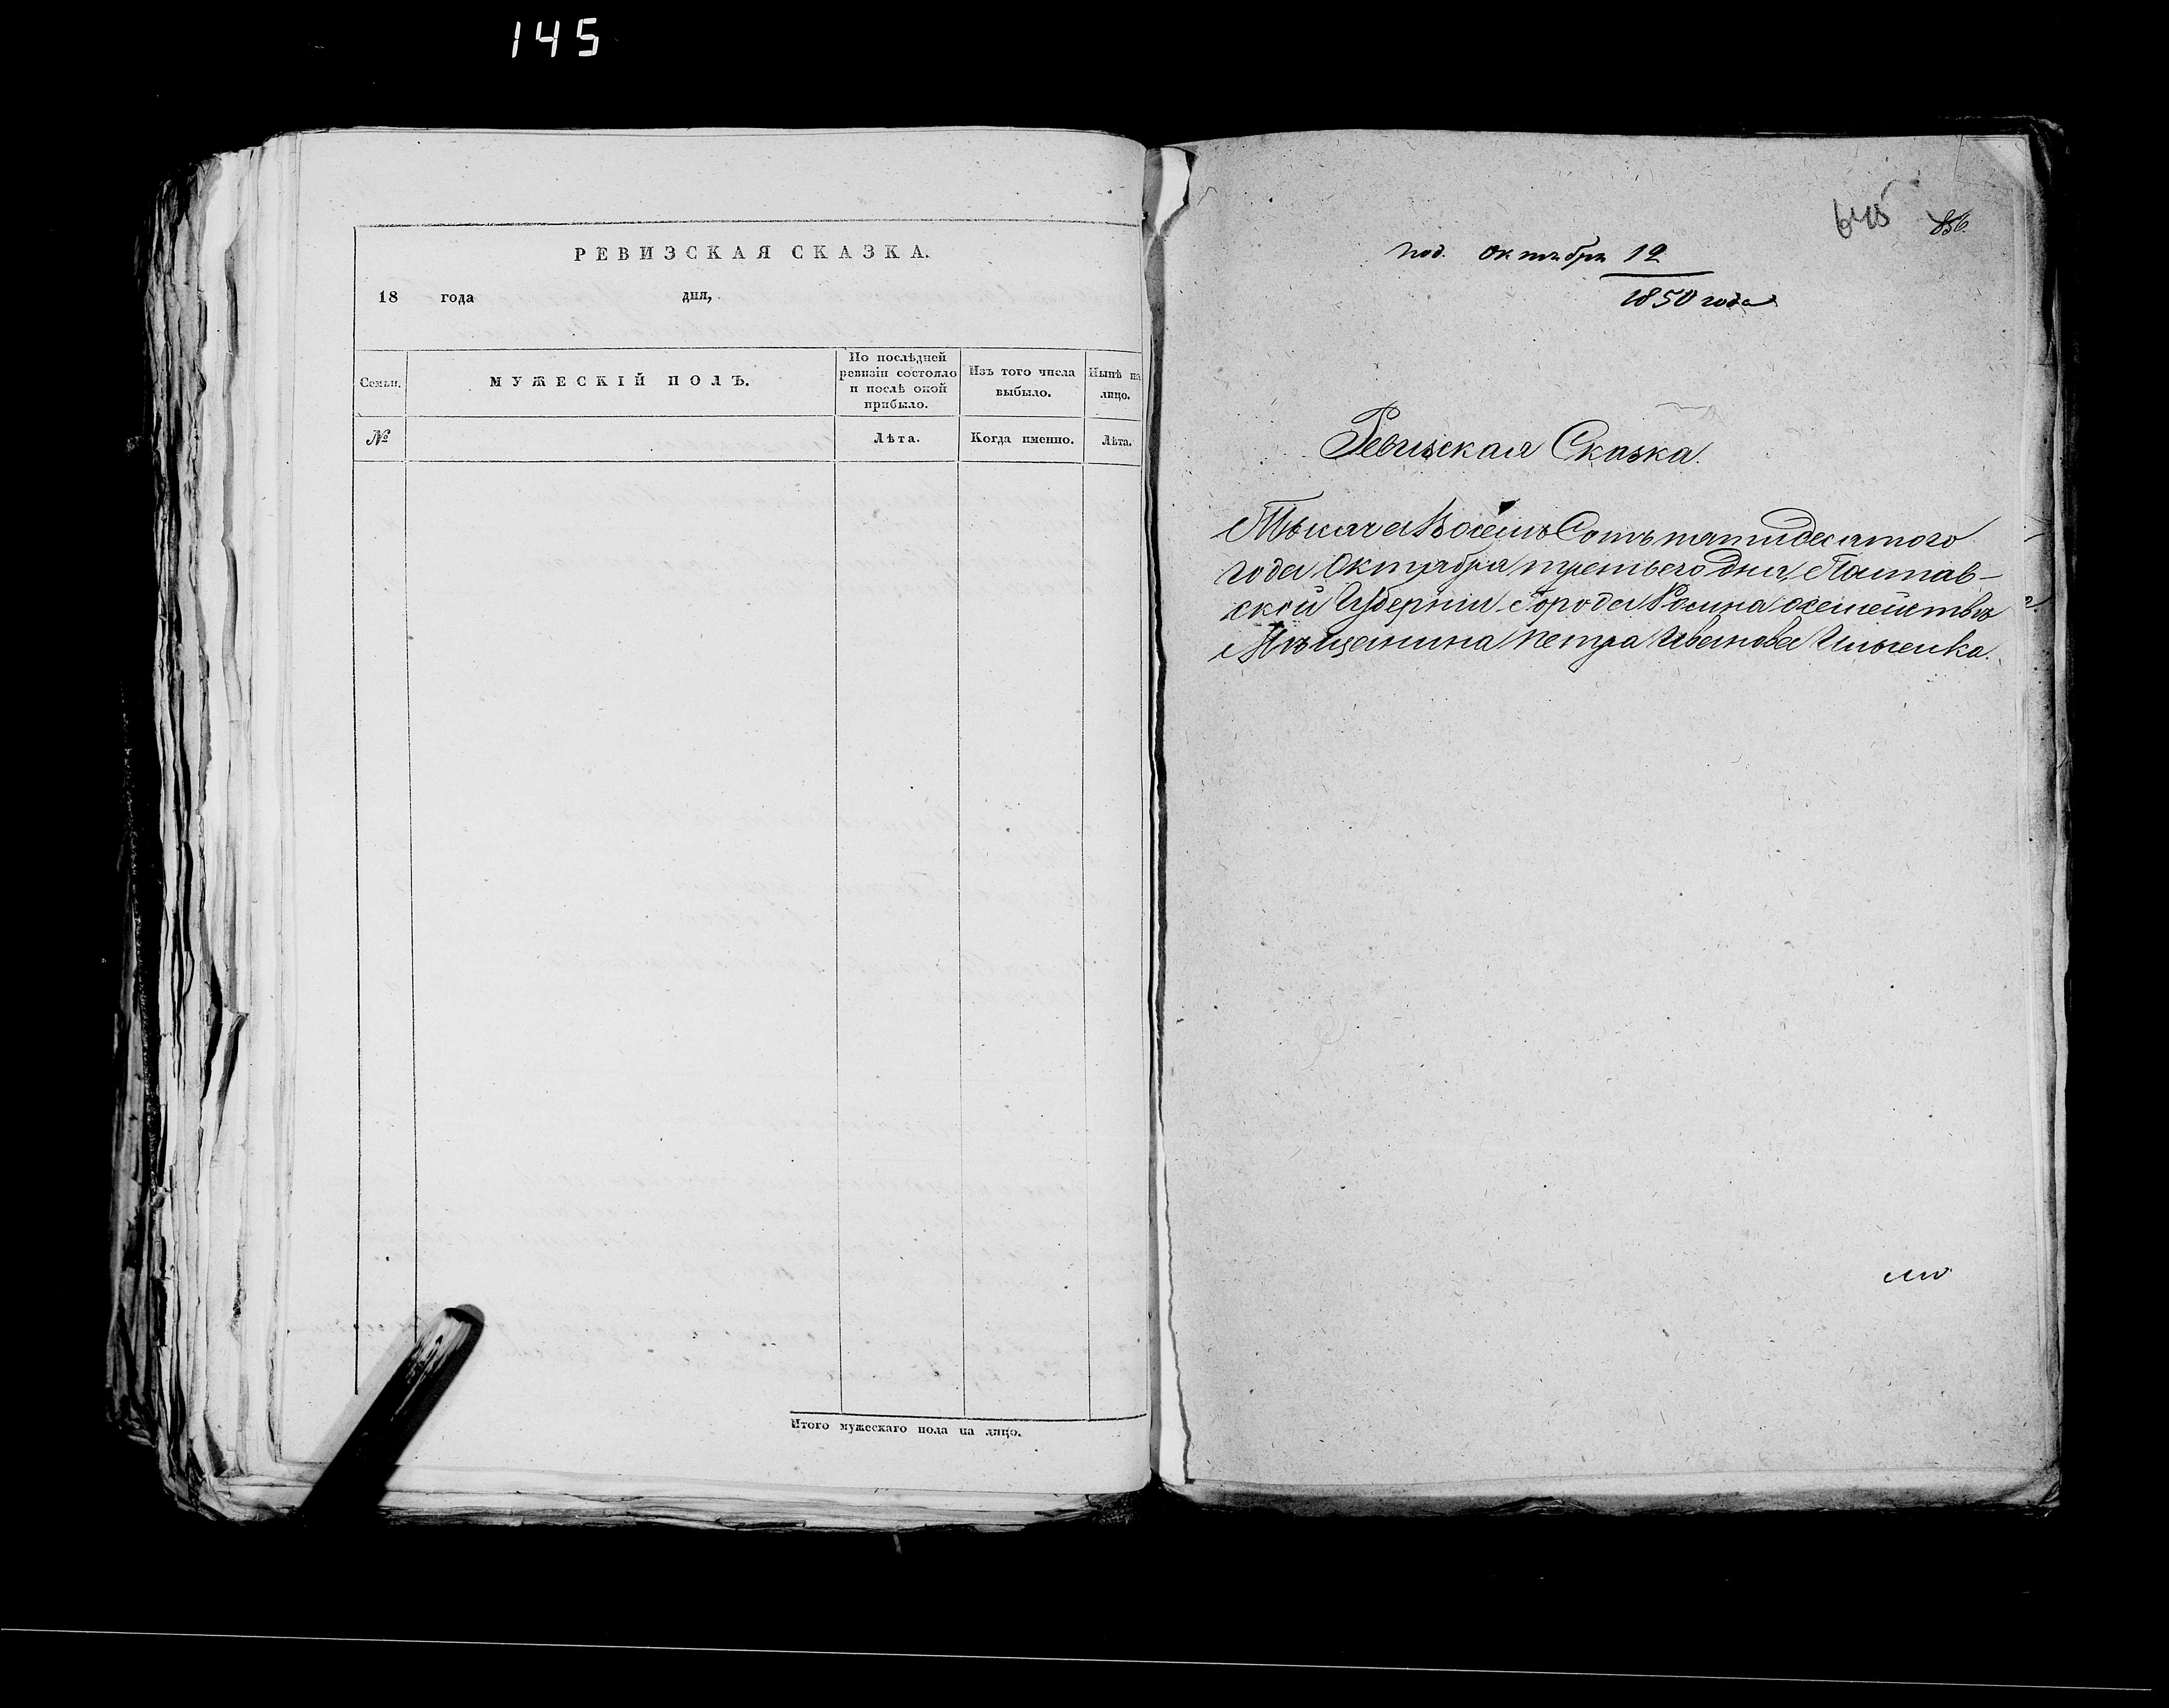 145
РЕВИЗСКАЯ СКАЗКА.
18 года дня,
Семьи.
МУЖЕСКІЙ ПОЛЪ.
По послѣдней ревизіи состояло и послѣ оной прибыло.
Изъ того числа выбыло.
Нынѣ на лицо.
№
Лѣта.
Когда именно.
Лѣта.
Итого мужескаго пола на лицо.
645 856.
под. октября 12
1850 года
Ревизская Сказка.
Тысяча Восемь Сотъ пятидесятого
года Октября третьего дня, Полтав-
ской Губернии Города Ромна о семействѣ
Мѣщанина Петра Иванова Ильченка.